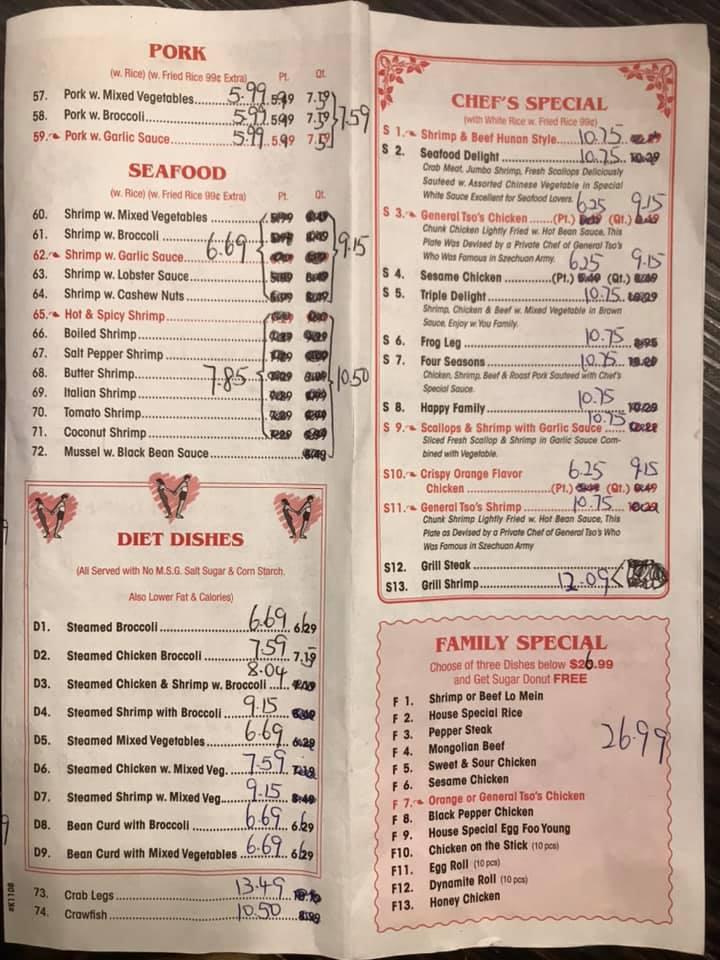 PORK
(w. Rice) (w. Fried Rice 99¢ Extra) Pt. Qt.
57. Pork w. Mixed Vegetables 5.99 7.59
58. Pork w. Broccoli 5.99
59. Pork w. Garlic Sauce 5.99
SEAFOOD
(w. Rice) (w. Fried Rice 99¢ Extra) Pt. Qt.
60. Shrimp w. Mixed Vegetables
61. Shrimp w. Broccoli 6.69 9.15
62. Shrimp w. Garlic Sauce
63. Shrimp w. Lobster Sauce
64. Shrimp w. Cashew Nuts
65. Hot & Spicy Shrimp
66. Boiled Shrimp
67. Salt Pepper Shrimp
68. Butter Shrimp 7.85 10.50
69. Italian Shrimp
70. Tomato Shrimp
71. Coconut Shrimp
72. Mussel w. Black Bean Sauce
DIET DISHES
(All Served with No M.S.G. Salt Sugar & Corn Starch.
Also Lower Fat & Calories)
D1. Steamed Broccoli 6.69 6.29
D2. Steamed Chicken Broccoli 7.59 7.19
D3. Steamed Chicken & Shrimp w. Broccoli 8.04
D4. Steamed Shrimp with Broccoli 9.15
D5. Steamed Mixed Vegetables 6.69 6.29
D6. Steamed Chicken w. Mixed Veg. 7.59 7.19
D7. Steamed Shrimp w. Mixed Veg. 9.15 8.49
D8. Bean Curd with Broccoli 6.69 6.29
D9. Bean Curd with Mixed Vegetables 6.69 6.29
73. Crab Legs 13.49
74. Crawfish 10.50 8.99
#K1108
CHEF'S SPECIAL
(with White Rice w. Fried Rice 99¢)
S 1. Shrimp & Beef Hunan Style 10.75 10.29
S 2. Seafood Delight 10.75 10.29
Crab Meat, Jumbo Shrimp, Fresh Scallops Deliciously
Sauteed w. Assorted Chinese Vegetable in Special
White Sauce Excellent for Seafood Lovers.
S 3. General Tso's Chicken (Pt.) 6.25 (Qt.) 9.15
Chunk Chicken Lightly Fried w. Hot Bean Sauce, This
Plate Was Devised by a Private Chef of General Tso's
Who Was Famous in Szechuan Army.
S 4. Sesame Chicken (Pt.) 6.25 (Qt.) 9.15
S 5. Triple Delight 10.75 10.29
Shrimp, Chicken & Beef w. Mixed Vegetable in Brown
Sauce, Enjoy w. You Family.
S 6. Frog Leg 10.75 8.95
S 7. Four Seasons 10.75
Chicken, Shrimp, Beef & Roast Pork Sauteed with Chef's
Special Sauce.
S 8. Happy Family 10.75 10.29
S 9. Scallops & Shrimp with Garlic Sauce 10.75
Sliced Fresh Scallop & Shrimp in Garlic Sauce Com-
bined with Vegetable.
S10. Crispy Orange Flavor
Chicken (Pt.) 6.25 (Qt.) 9.15
S11. General Tso's Shrimp 10.75 10.29
Chunk Shrimp Lightly Fried w. Hot Bean Sauce, This
Plate as Devised by a Private Chef of General Tso's Who
Was Famous in Szechuan Army
S12. Grill Steak
S13. Grill Shrimp 12.09
FAMILY SPECIAL
Choose of three Dishes below $26.99
and Get Sugar Donut FREE
F 1. Shrimp or Beef Lo Mein
F 2. House Special Rice
F 3. Pepper Steak
F 4. Mongolian Beef 26.99
F 5. Sweet & Sour Chicken
F 6. Sesame Chicken
F 7. Orange or General Tso's Chicken
F 8. Black Pepper Chicken
F 9. House Special Egg Foo Young
F10. Chicken on the Stick (10 pcs)
F11. Egg Roll (10 pcs)
F12. Dynamite Roll (10 pcs)
F13. Honey Chicken